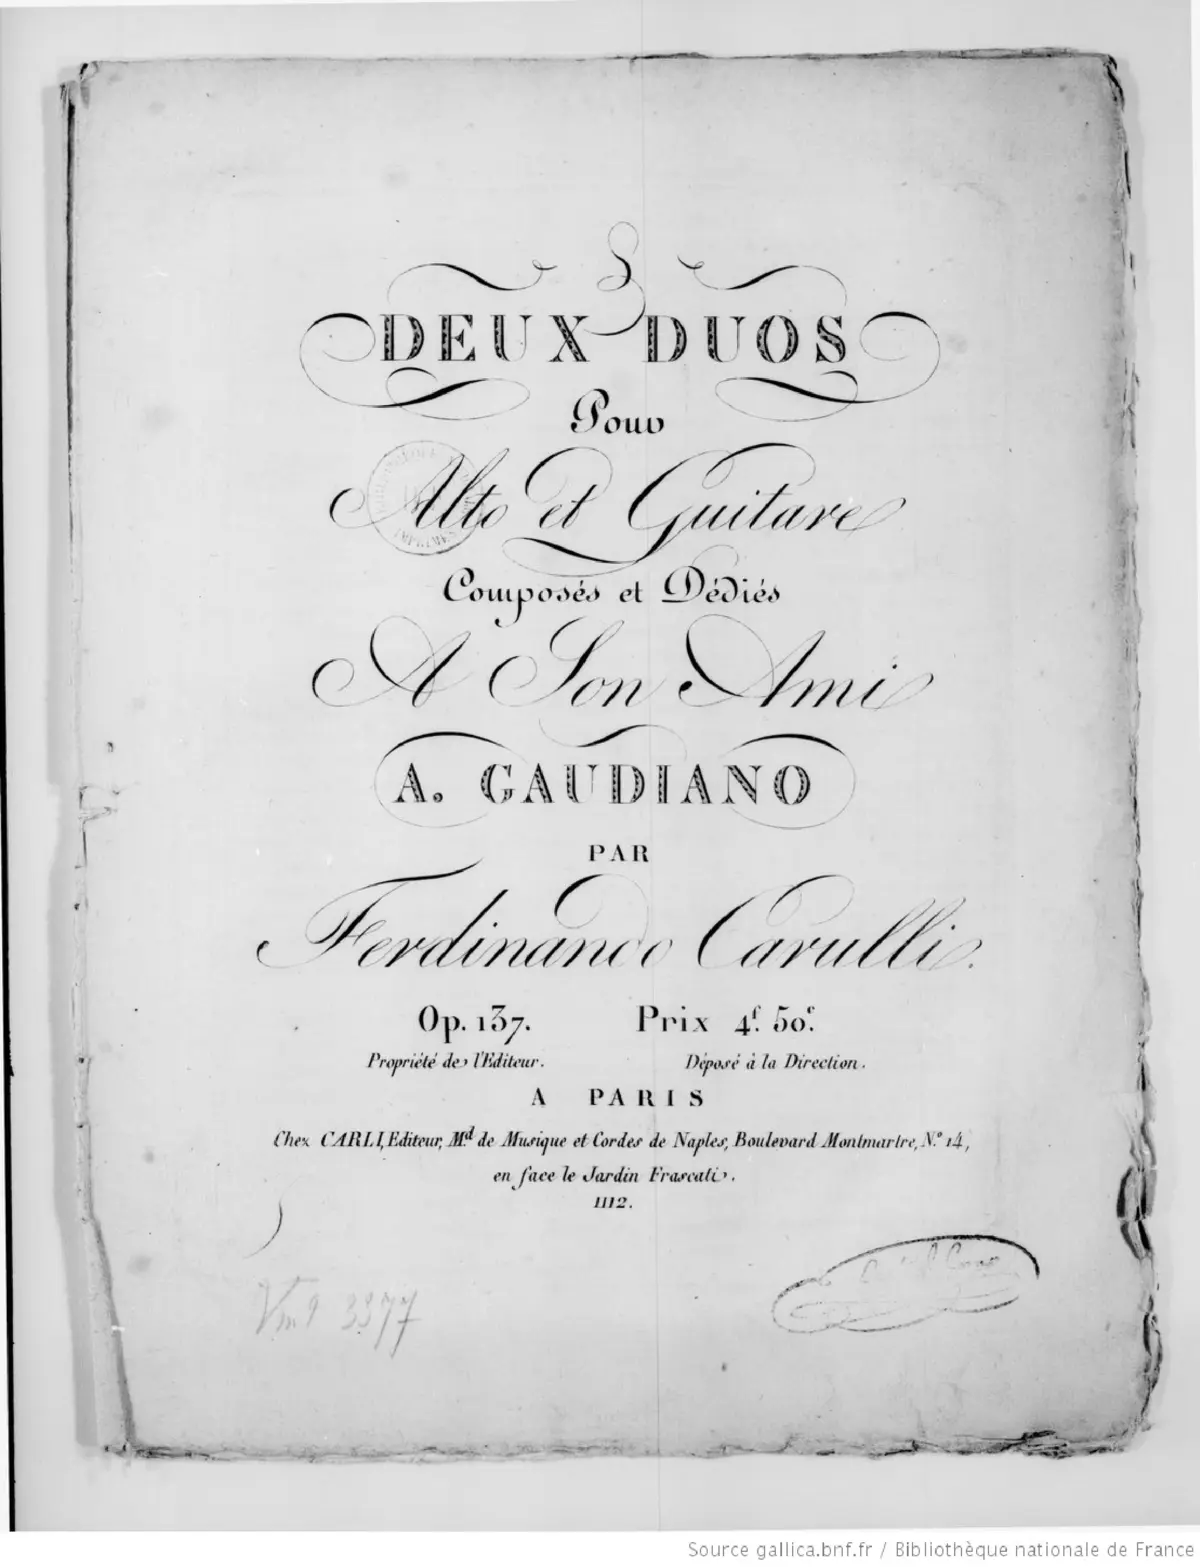 DEUX DUOS
Pour
Alto et Guitare
Composés et Dédiés
A Son Ami
A. GAUDIANO
PAR
Ferdinando Carulli.
Op. 137. Prix 4f. 50c.
Propriété de l'Editeur. Déposé à la Direction.
A PARIS
Chez CARLI, Editeur, Md. de Musique et Cordes de Naples, Boulevard Montmartre, No. 14,
en face le Jardin Frascati.
1112.
Vm9 3377
Source gallica.bnf.fr / Bibliothèque nationale de France